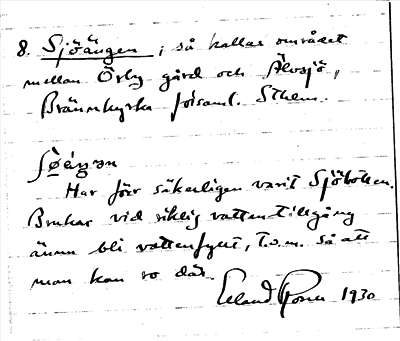 8. Sjöängen ; så kallas området
mellan Örby gård och Älvsjö,
Brännkyrka församl. Sthlm.
Har förr säkerligen varit Sjöbotten.
Brukar vid riklig vattentillgång
ännu bli vattenfyllt, t.o.m. så att
man kan ro där.
Erland 1930